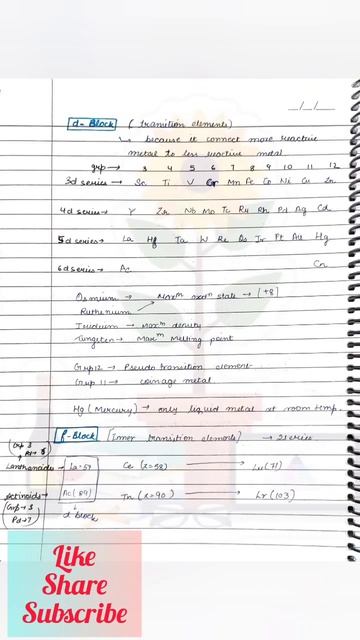 __/__/__
d-Block ( transition elements)
↳ because it connect more reactive
metal to less reactive metal.
grp → 3 4 5 6 7 8 9 10 11 12
3d series → Sc Ti V Cr Mn Fe Co Ni Cu Zn
4d series → Y Zr Nb Mo Tc Ru Rh Pd Ag Cd
5d series → La Hf Ta W Re Os Ir Pt Au Hg
6d series → Ac Cn
Osmium → Maxm oxdn state → (+8)
Ruthenium
Iridium → Maxm density
Tungsten → Maxm Melting point
Grp 12 → Pseudo transition element
Grp 11 → coinage metal
Hg (Mercury) → only liquid metal at room temp.
f-Block [Inner transition elements) → 2 series
(Grp 3
Pd → 6)
Lanthanoids → La = 57 Ce (z=58) → Lu (71)
Actinoids → Ac (89) Th (z=90) → Lr (103)
(Grp → 3
Pd → 7)
d block
Like
Share
Subscribe